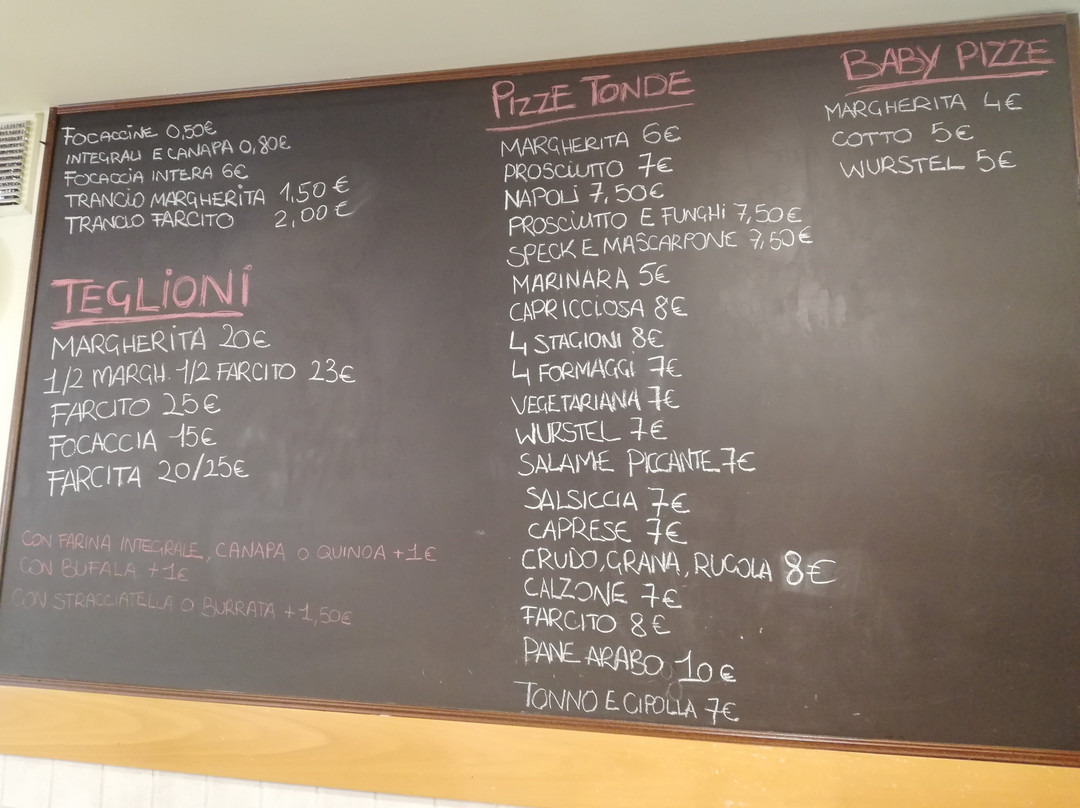 FOCACCINE 0,50€
INTEGRALI E CANAPA 0,80€
FOCACCIA INTERA 6€
TRANCIO MARGHERITA 1,50€
TRANCIO FARCITO 2,00€
TEGLIONI
MARGHERITA 20€
1/2 MARGH. 1/2 FARCITO 23€
FARCITO 25€
FOCACCIA 15€
FARCITA 20/25€
CON FARINA INTEGRALE, CANAPA O QUINOA +1€
CON BUFALA +1€
CON STRACCIATELLA O BURRATA +1,50€
PIZZE TONDE
MARGHERITA 6€
PROSCIUTTO 7€
NAPOLI 7,50€
PROSCIUTTO E FUNGHI 7,50€
SPECK E MASCARPONE 7,50€
MARINARA 5€
CAPRICCIOSA 8€
4 STAGIONI 8€
4 FORMAGGI 7€
VEGETARIANA 7€
WURSTEL 7€
SALAME PICCANTE 7€
SALSICCIA 7€
CAPRESE 7€
CRUDO, GRANA, RUCOLA 8€
CALZONE 7€
FARCITO 8€
PANE ARABO 10€
TONNO E CIPOLLA 7€
BABY PIZZE
MARGHERITA 4€
COTTO 5€
WURSTEL 5€